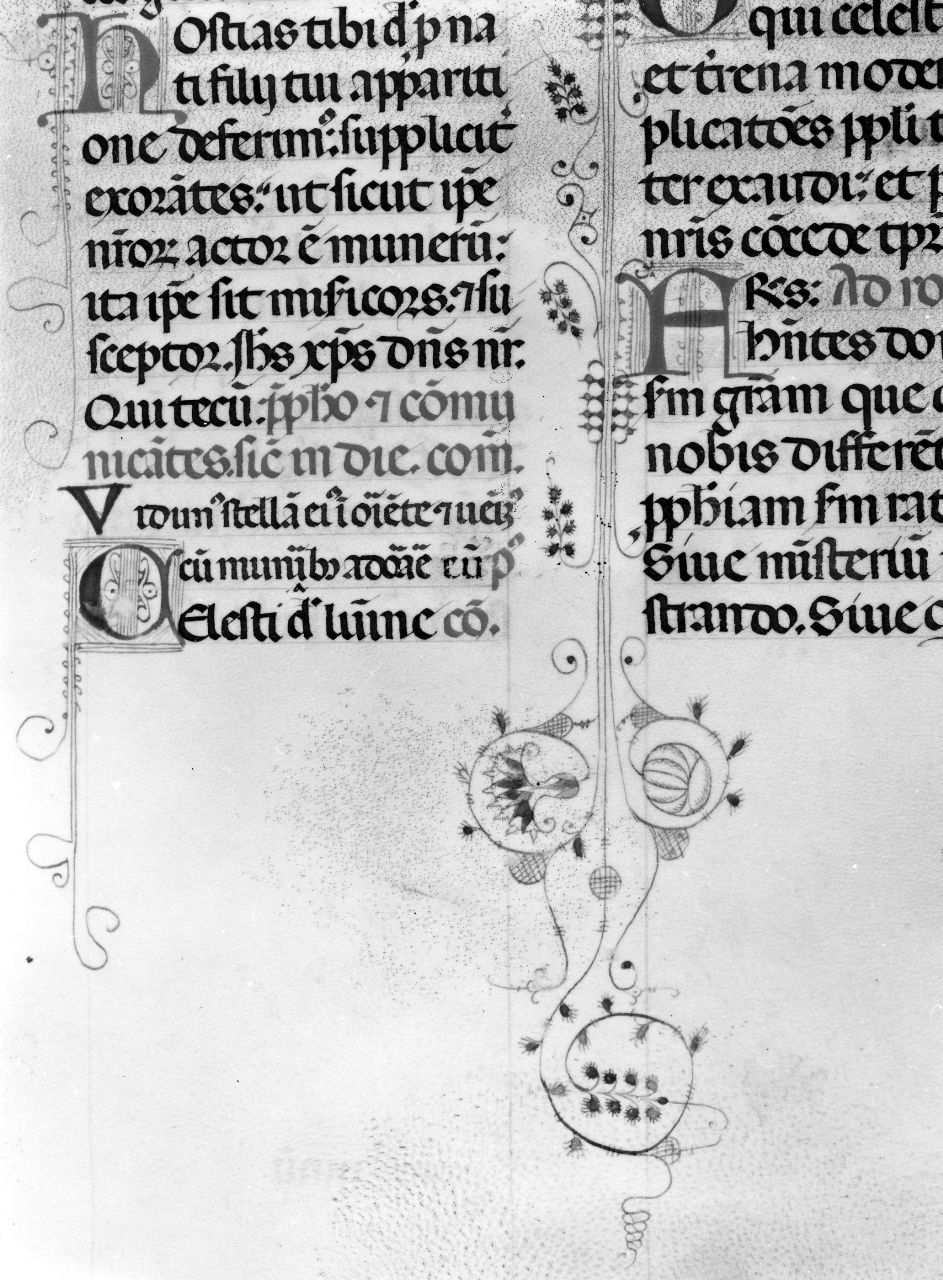 Hostias tibi dñe p na
ti filij tui appariti
one deferimꝰ: supplicit̾
exorãtes: ut sicut ip̃e
nr̃oꝝ actoꝝ ẽ munerũ:
ita ip̃e sit misẽricors: ⁊ su
sceptor. Jhs xp̃s dñs nr̃:
Qui tecũ:
nicãtes. sic̃ in die. com̃.
stellã
cũ munĩbꝫ adorãẽ
Celesti d̾ lum̃ne cõ.
qui celest
et t̾rena moder
plicatões ppl̃i t
ter exaudi: et p
nr̃is cõcede tp̃
Ad ro
hñtes do
sm gr̃am que
nobis differẽt
pph̃iam sm rat
Siue mĩsteriũ
strando. Siue